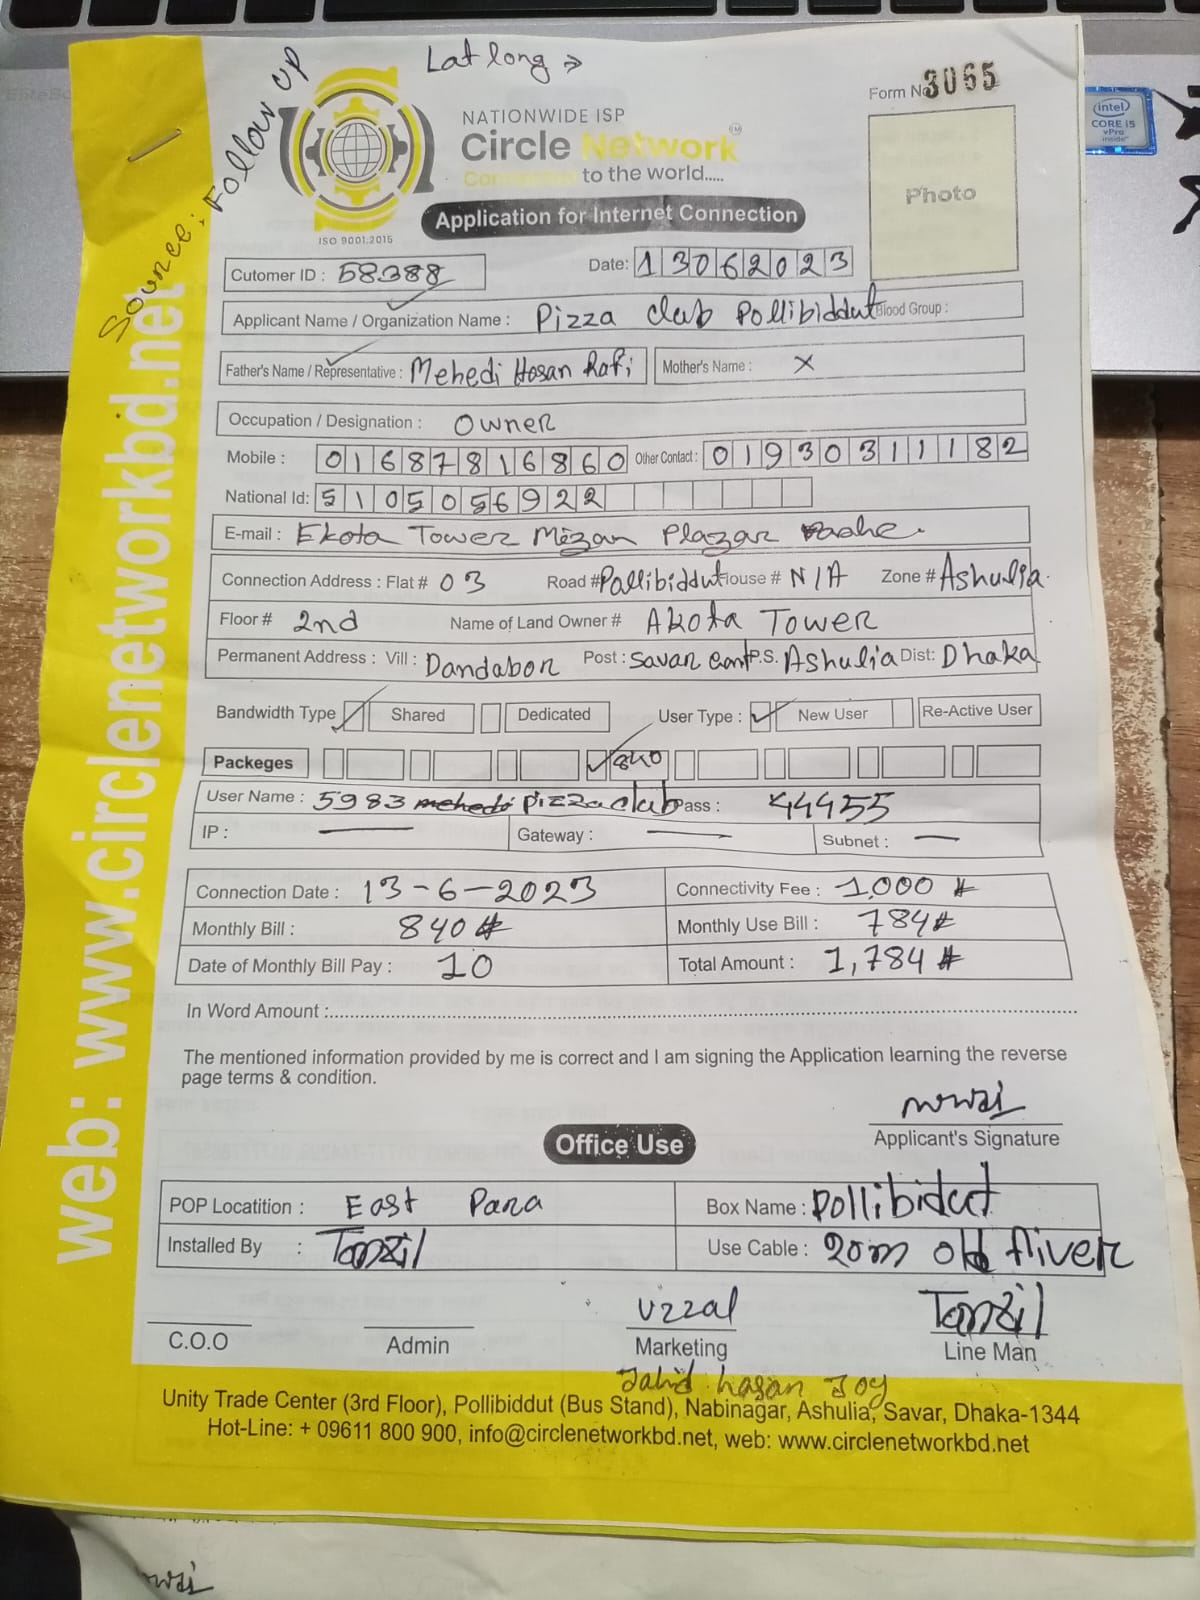 Lat long ⇒
Source: Follow up
Form No 3065
NATIONWIDE ISP
Circle Network
Connected to the world.....
ISO 9001:2015
Photo
Application for Internet Connection
Cutomer ID : 58388 Date: 13062023
Applicant Name / Organization Name : Pizza club Pollibiddut Blood Group :
Father's Name / Representative : Mehedi Hosan Rafi Mother's Name : X
Occupation / Designation : Owner
Mobile : 01687816860 Other Contact : 01930311182
National Id: 5105056922
E-mail : Ekota Tower Mizan Plazar Pashe.
Connection Address : Flat # 03 Road # Pallibiddut House # N/A Zone # Ashulia
Floor # 2nd Name of Land Owner # Akota Tower
Permanent Address : Vill : Dandabor Post : Savar Cant P.S. Ashulia Dist: Dhaka
Bandwidth Type Shared Dedicated User Type : New User Re-Active User
Packeges 840
User Name : 5983 pizzaclub Pass : 44455
IP : — Gateway : — Subnet : —
Connection Date : 13-6-2023 Connectivity Fee : 1,000
Monthly Bill : 840 Monthly Use Bill : 784
Date of Monthly Bill Pay : 10 Total Amount : 1,784
In Word Amount :
The mentioned information provided by me is correct and I am signing the Application learning the reverse
page terms & condition.
Applicant's Signature
Office Use
POP Locatition : East Para Box Name : Pollibidut
Installed By : Tanzil Use Cable : 20m old fiver
Uzzal Tanzil
C.O.O Admin Marketing Line Man
Jahid hasan Joy
Unity Trade Center (3rd Floor), Pollibiddut (Bus Stand), Nabinagar, Ashulia, Savar, Dhaka-1344
Hot-Line: + 09611 800 900, info@circlenetworkbd.net, web: www.circlenetworkbd.net
web: www.circlenetworkbd.net
intel
CORE i5
vPro
inside